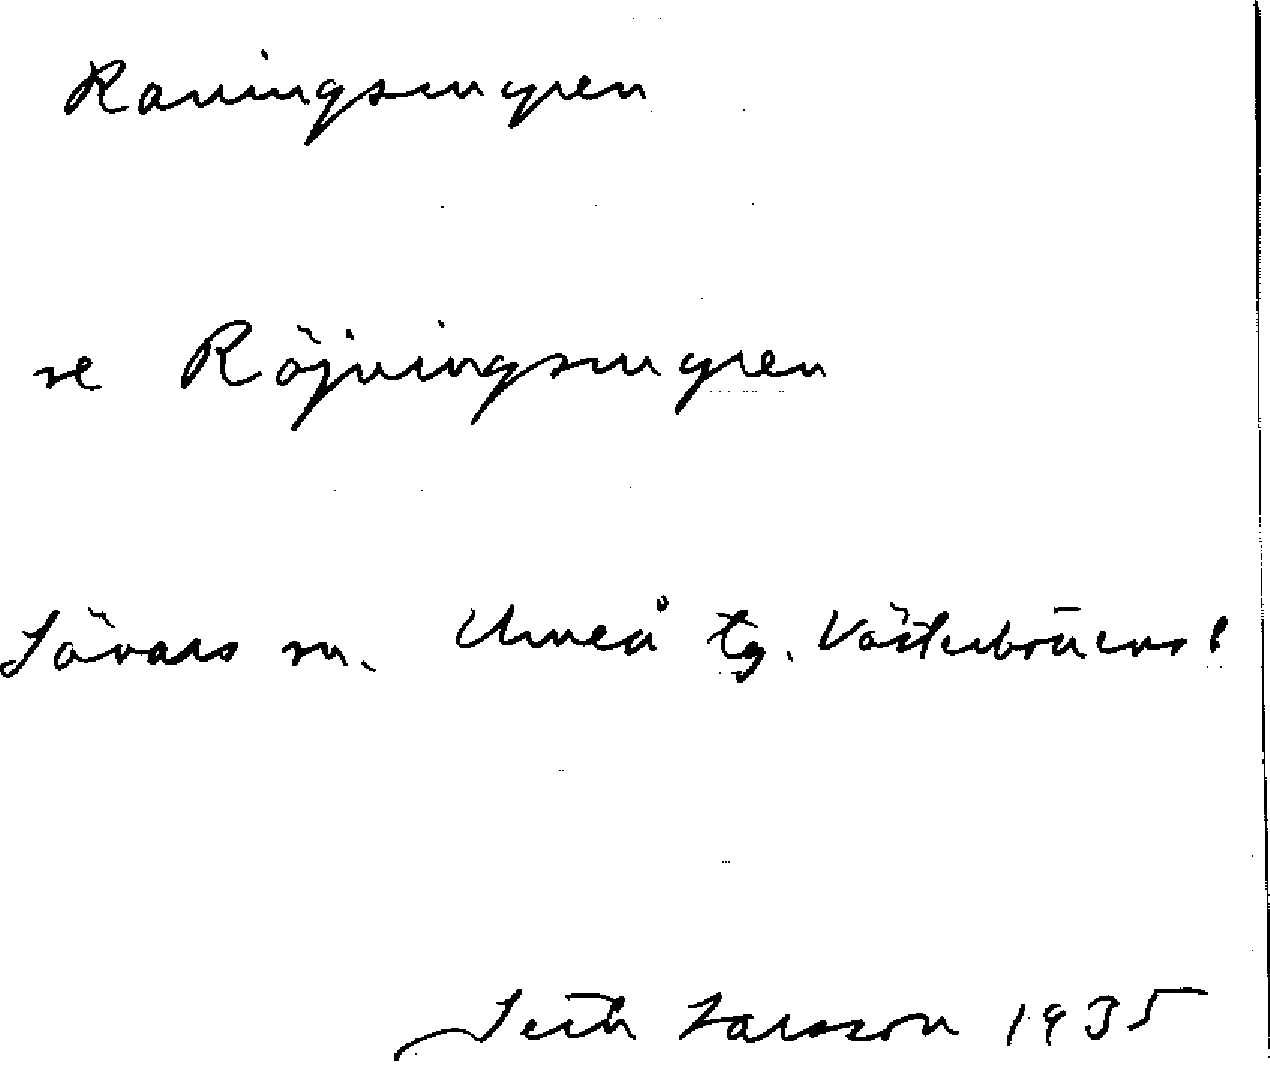 Rarningsmyren
se Röjningsmyren
Sävars sn. Umeå tg. Västerbottens l
Seth Larsson 1935